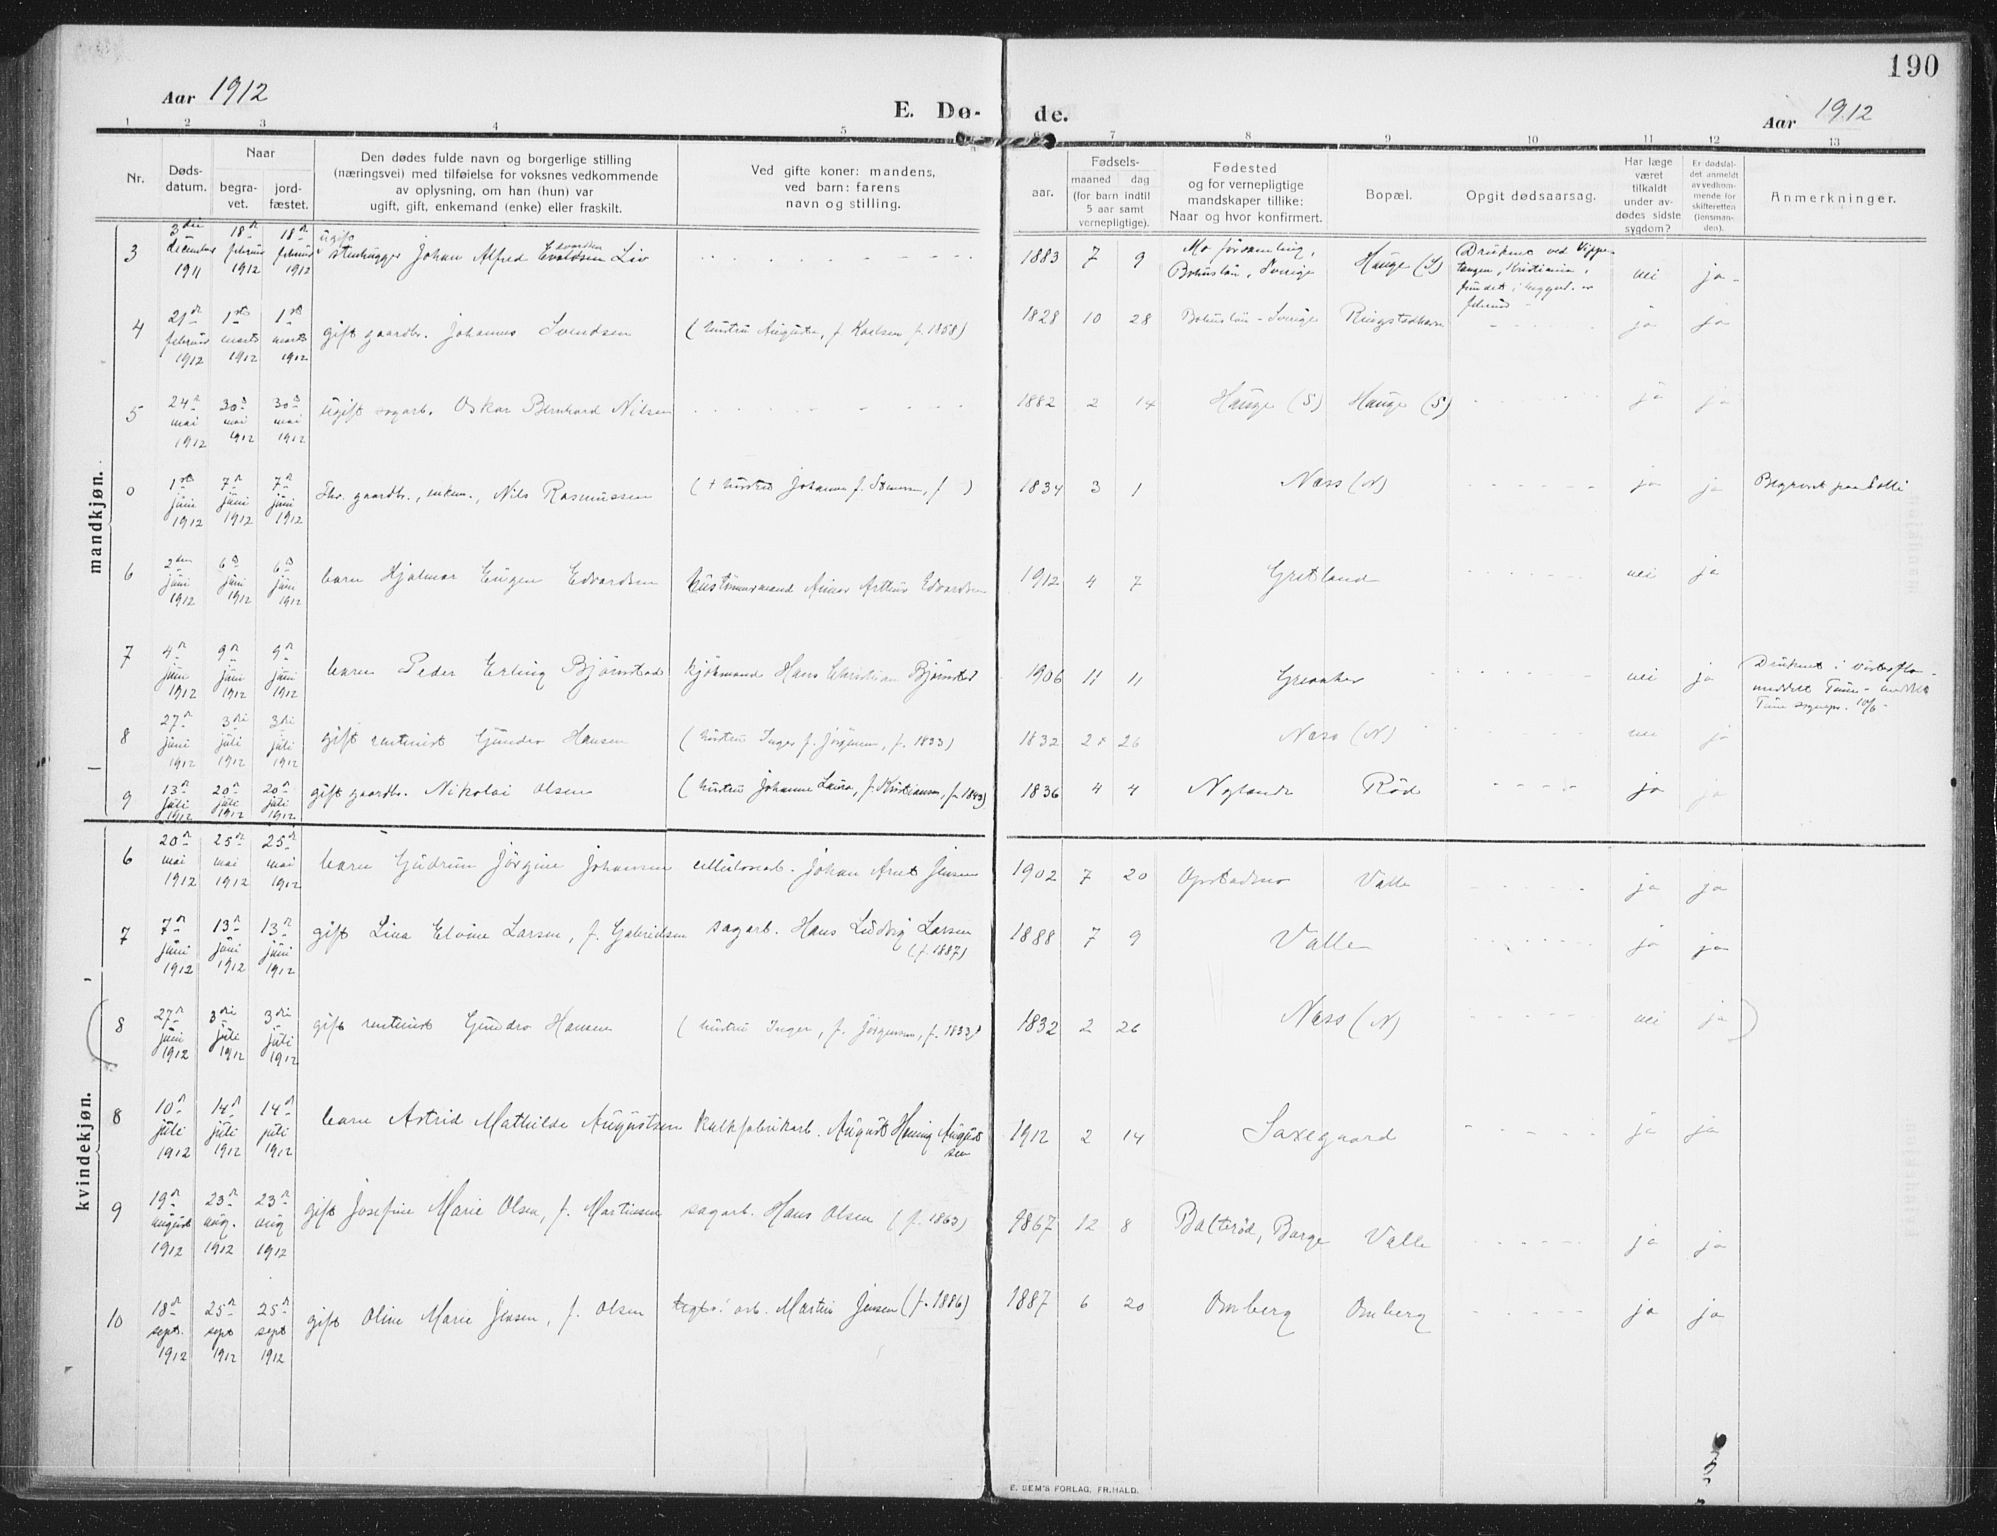 190
Aar 1912
E. Dø-
de.
Aar 1912
1 2 3 4 5 6 7 8 9 10 11 12 13
Nr.
Døds-
datum.
Naar
begra-
vet.
jord-
fæstet.
Den dødes fulde navn og borgerlige stilling
(næringsvei) med tilføielse for voksnes vedkommende
av oplysning, om han (hun) var
ugift, gift, enkemand (enke) eller fraskilt.
Ved gifte koner: mandens,
ved barn: farens
navn og stilling.
aar.
Fødsels-
maaned dag
(for barn indtil
5 aar samt
vernepligtige).
Fødested
og for vernepligtige
mandskaper tillike:
Naar og hvor konfirmert.
Bopæl.
Opgit dødsaarsag.
Har læge
været
tilkaldt
under av-
dødes sidste
sygdom?
Er dødsfal-
det anmeldt
av vedkom-
mende for
skifteretten
(lensman-
den).
Anmerkninger.
mandkjøn.
3 3die december 1911 18de februar 1912 18de februar 1912 ugift stenhugger Johan Alfred Evaldsen Liv 1883 7 9 Mo forsamling, Bohuslän, Sverige Hauge (S) Druknet ved Vippetangen, Kristiania, fundet februar nei ja
Edvardsen
4 21de februar 1912 1ste marts 1912 1ste marts 1912 gift gaardbr. Johannes Svendsen (hustru Augusta, f. Karlsen, f. 1858) 1828 10 28 Bohuslän - Sverige Ringstadhavn ja ja
5 24de mai 1912 30de mai 1912 30de mai 1912 ugift sagarb. Oskar Bernhard Nilsen 1882 2 14 Hauge (S) Hauge (S) ja ja
0 1ste juni 1912 7de juni 1912 7de juni 1912 Fhv. gaardbr., enkem., Nils Rasmussen (+ hustru Johanne f. f. ) 1834 3 1 Næss (N) ja ja Begravet paa Solli
6 2den juni 1912 6te juni 1912 6te juni 1912 barn Hjalmar Eugen Edvardsen bustømmermand Arthur Edvardsen 1912 4 7 Gretland nei ja
7 4de juni 1912 9de juni 1912 9de juni 1912 barn Peder Erling Bjørnstad kjøbmand Hans Christian Bjørnstad 1906 11 11 Greaaker nei ja Druknet i Visterflo - meddelt Tune - meddelt Tune sognepr. 10/6 -
8 27de juni 1912 3die juli 1912 3die juli 1912 gift rentenist Gundro Hansen (hustru Inger f. Jörgensen, f. 1833) 1832 2 26 Næss (N) nei ja
9 13de juli 1912 20de juli 1912 20de juli 1912 gift gaardbr. Nikolai Olsen (hustru Johanne Laura, f. Kristiansen, f. 1843) 1836 4 4 Nylende Röd ja ja
kvindekjøn.
6 20de mai 1912 25de mai 1912 25de mai 1912 barn Gudrun Jörgine Johansen cellulosearb. Johan Arnt Jensen 1902 7 20 Opstadmo Valle ja ja
7 7de juni 1912 13de juni 1912 13de juni 1912 gift Lina Elvine Larsen, f. Gabrielsen sagarb. Hans Ludvig Larsen (f. 1887) 1888 7 9 Valle ja ja
(8 27de juni 1912 3die juli 1912 3die juli 1912 gift rentenist Gundro Hansen (hustru Inger, f. Jörgensen, f. 1833) 1832 2 26 Næss (N) nei ja)
8 10de juli 1912 14de juli 1912 14de juli 1912 barn Astrid Mathilde Augustsen kalkfabrikarb. August Hening Augustsen 1912 2 14 Saxegaard ja ja
9 19de august 1912 23de aug. 1912 23de aug 1912 gift Josefine Marie Olsen, f. Martinsen sagarb. Hans Olsen (f. 1863) 1867 12 8 Balterød, Borge Valle ja ja
10 18de sept. 1912 25de sept 1912 25de sept 1912 gift Oline Marie Jensen, f. Olsen arb. Martin Jensen (f. 1886) 1887 6 20 Omberg Omberg ja ja
E. SEM'S FORLAG, FR.HALD.